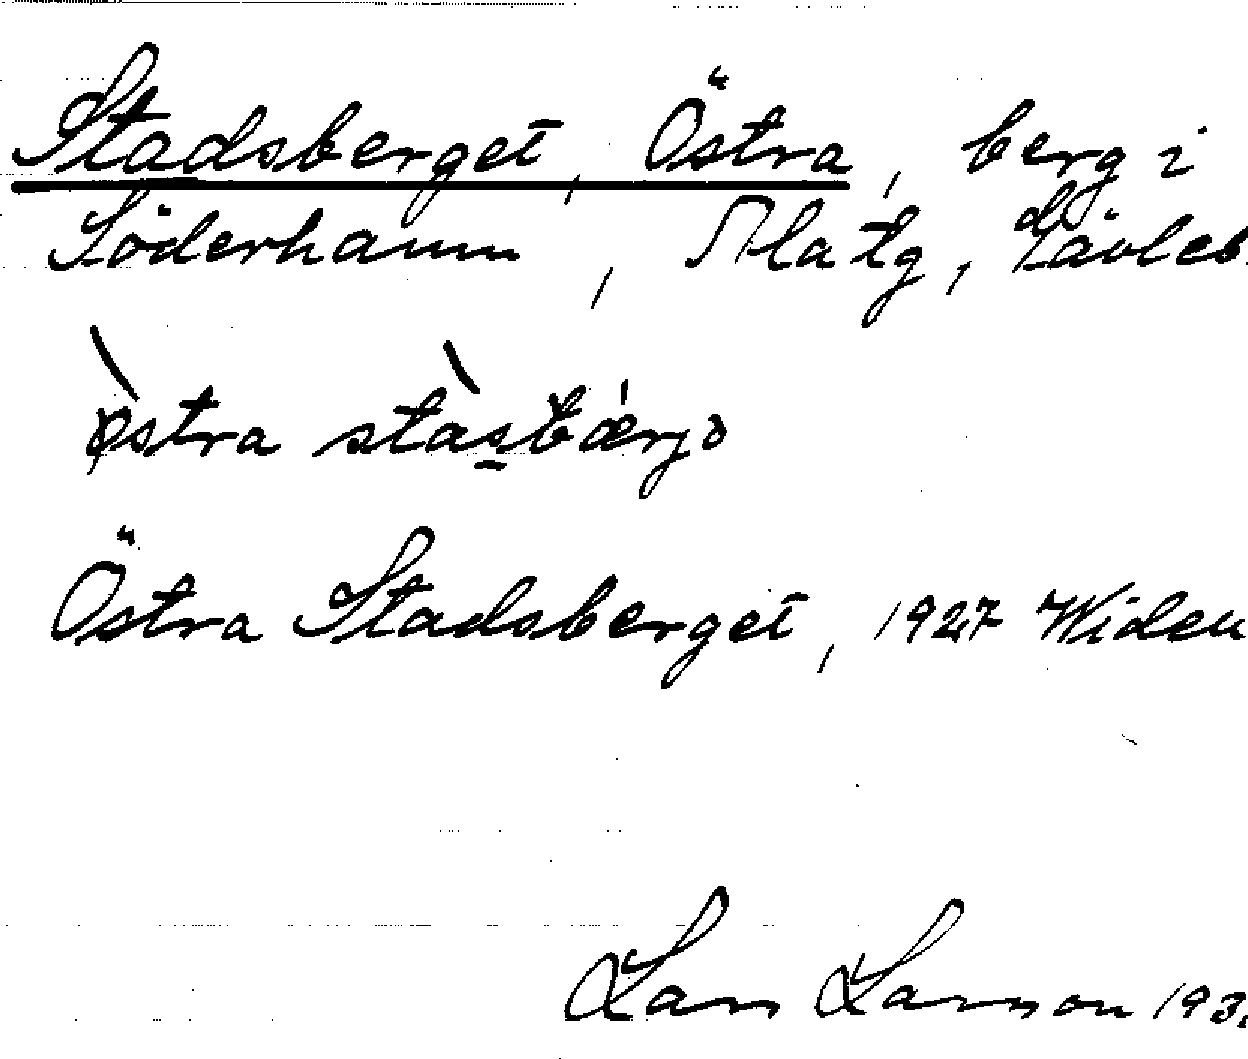 Stadsberget, Östra, berg i
Söderhamn, Ala tg, Gävleb.
östra stasbærjə
Östra Stadsberget, 1927 Widen
Lars Larsson 193